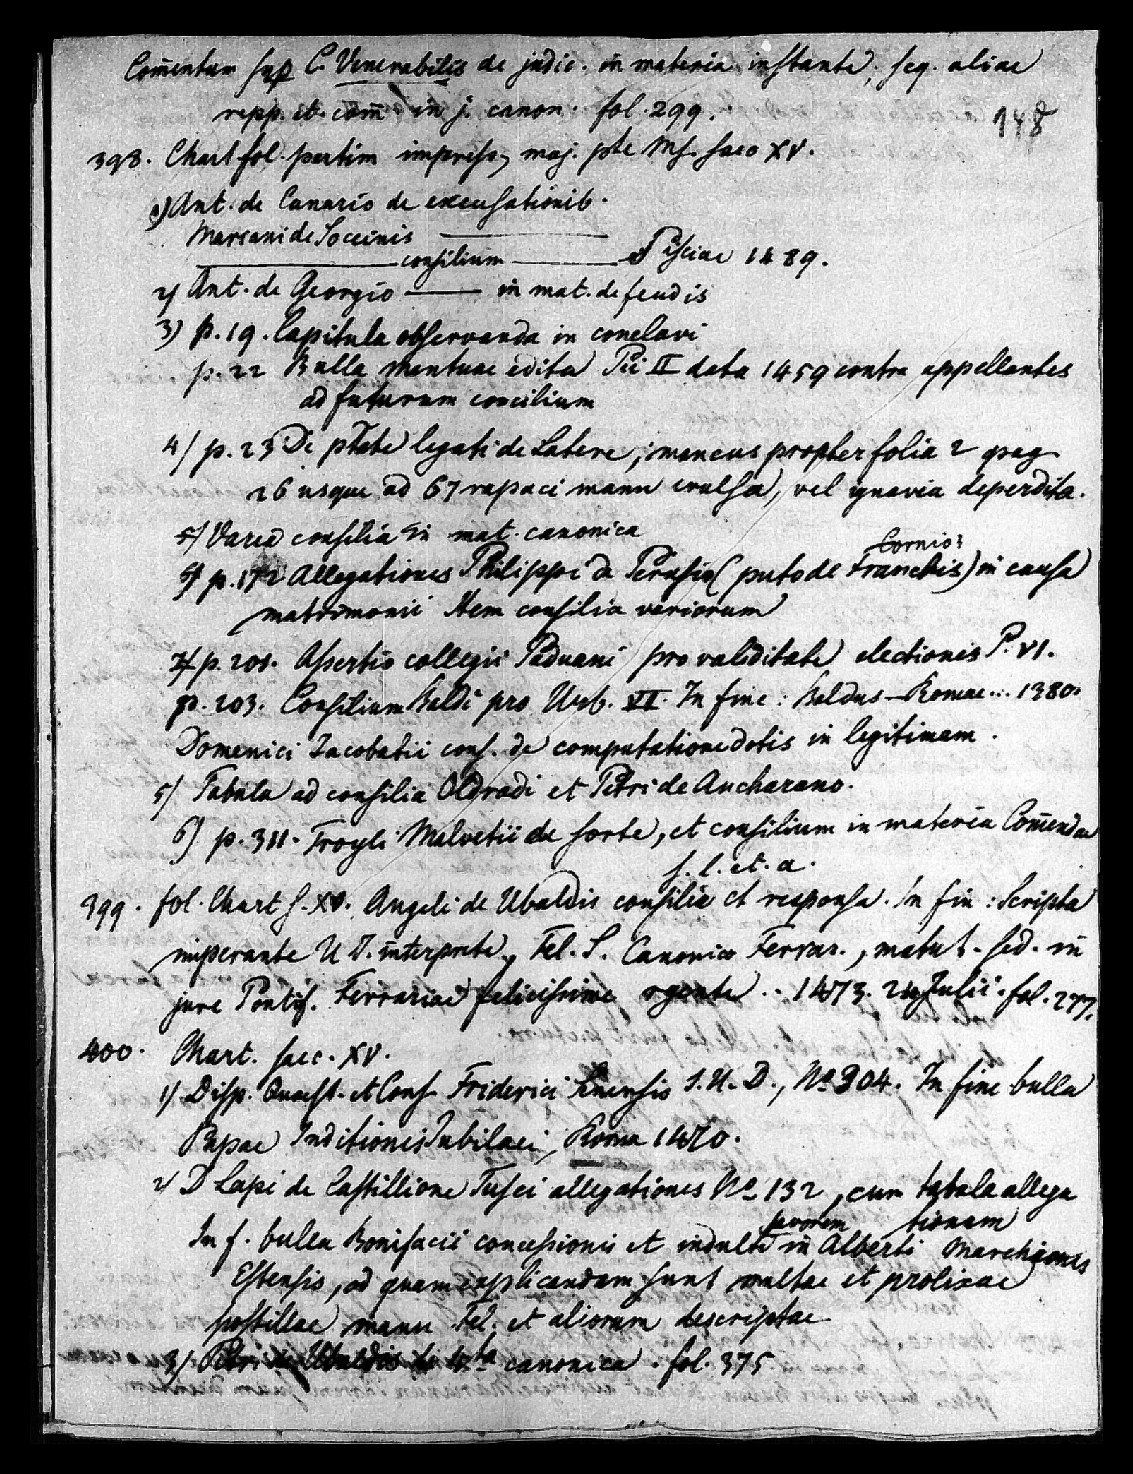 Com̄entum sup C. Venerabilis de judic. in materia instante, seq. aliae
repp. et com̄ in j. canon. fol. 299.
148
398. Chart fol. partim impress, maj. pte Ms. saec XV.
1) Ant. de Canario de excusationib.
Mariani de Soccinis
consilium Pisciae 1489.
2) Ant. de Georgio —— in mat. de feudis
3) p. 19. Capitula observanda in conclavi
p. 22 Bulla Mantuae edita Pii II data 1459 contra appellantes
ad futurum concilium
4) p. 23 De ptate legati de Latere, mancus propter folia 2 pag
26 usque ad 67 rapaci manu evulsa, vel ignavia deperdita.
5) Varia consilia in mat. canonica
Cornio:
6) p. 172 Allegationes Philippi de Perusio (puto de Franchis) in causa
matrimonii Item consilia variorum
7) p. 201. Assertio collegii Paduani pro validitate electionis P. VI.
p. 203. Consilium Baldi pro Urb. VI. In fine: Baldus — Romae... 1380.
Domenici Jacobatii cons. de computatione dotis in legitimam.
5) Tabula ad consilia Oldradi et Petri de Ancharano.
6) p. 311. Troyli Malvetii de sorte, et consilium in materia Com̄endae
s. l. et. a.
399. fol. Chart s. XV. Angeli de Ubaldis consilia et responsa. In fin: Scripta
imperante U. D. interprete, Fel. S. Canonico Ferrar., matut. sed. in
jure Pontif. Ferrariae felicissime regente .. 1473. 24 Julii. fol. 277.
400. Chart. saec. XV.
1) Disp. Quaest. et Cons Friderici Senensis J. U. D., No 304. In fine bulla
Papae Inditionis Jubilaei, Roma 1470.
2) D Lapi de Castillione Tusci allegationes No 132, cum tabula allega
tionum
favorem
In f. bulla Bonifacii concessionis et indulti in Alberti Marchionis
Estensis, ad quam explicandam sunt multae et prolixae
postillae manu Fel. et aliorum descriptae
3) Petri de Ubaldis de canonica. fol. 375